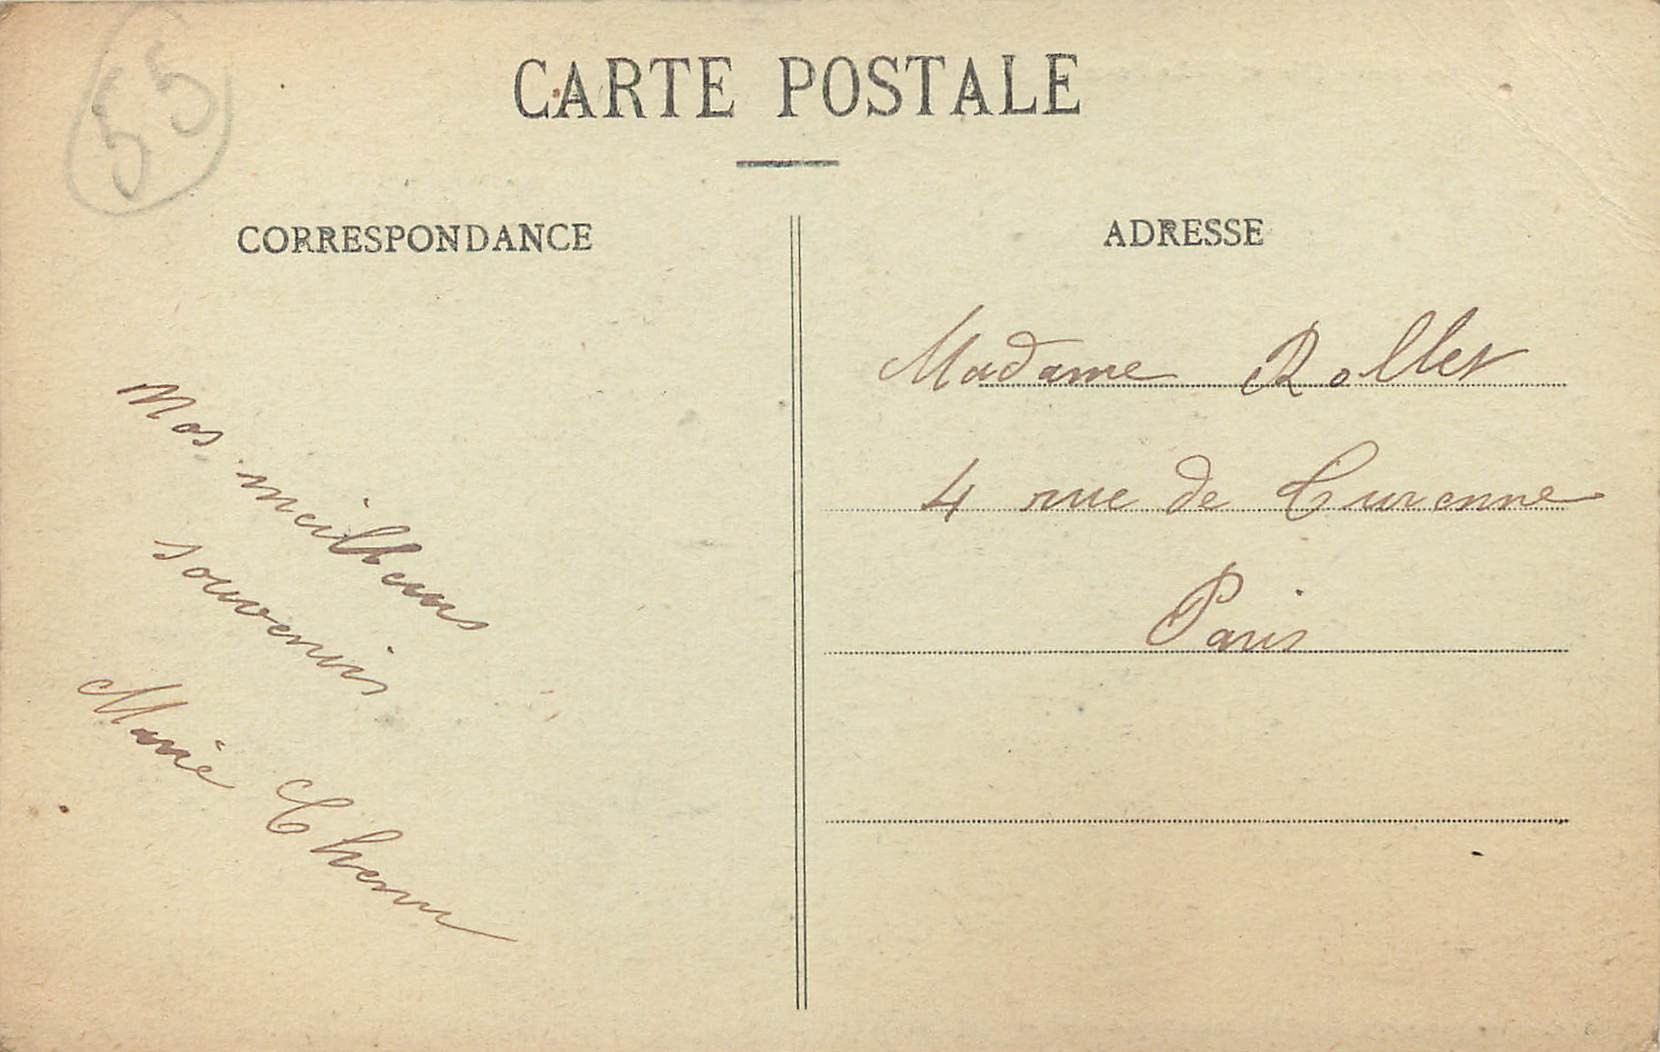 55
CARTE POSTALE
CORRESPONDANCE
ADRESSE
Mes meilleurs
souvenirs
Marie
Madame Rollet
4 rue de Turenne
Paris